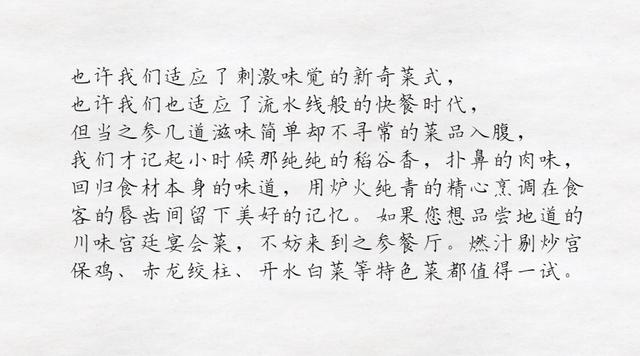 也许我们适应了刺激味觉的新奇菜式，
也许我们也适应了流水线般的快餐时代，
但当之参几道滋味简单却不寻常的菜品入腹，
我们才记起小时候那纯纯的稻谷香，扑鼻的肉味，
回归食材本身的味道，用炉火纯青的精心烹调在食
客的唇齿间留下美好的记忆。如果您想品尝地道的
川味宫廷宴会菜，不妨来到之参餐厅。燃汁剔炒宫
保鸡、赤龙绞柱、开水白菜等特色菜都值得一试。